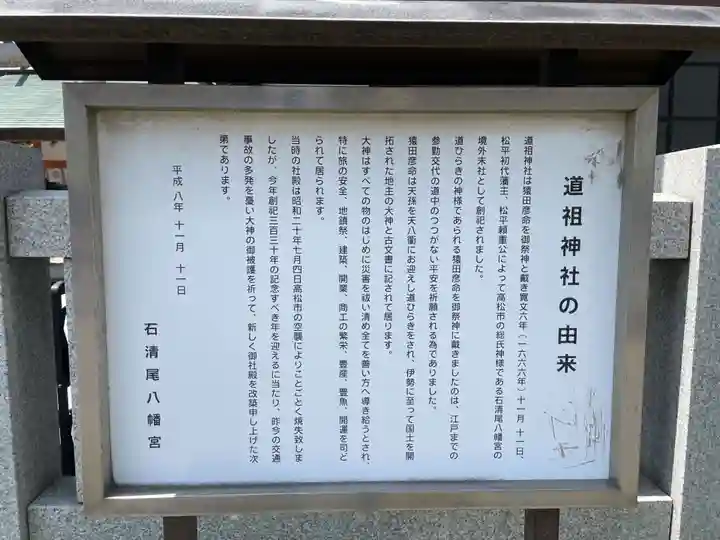 道祖神社の由来
道祖神社は猿田彦命を御祭神と戴き寛文六年（一六六六年）十一月十一日、
松平初代藩主、松平頼重公によって高松市の総氏神様である石清尾八幡宮の
境外末社として創祀されました。
道ひらきの神様であられる猿田彦命を御祭神に戴きましたのは、江戸までの
参勤交代の道中のつつがない平安を祈願される為でありました。
猿田彦命は天孫を天八衢にお迎えし道ひらきをされ、伊勢に至って国土を開
拓された地主の大神と古文書に記されて居ります。
大神はすべての物のはじめに災害を祓い清め全てを善い方へ導き給うとされ、
特に旅の安全、地鎮祭、建築、開業、商工の繁栄、豊産、豊魚、開運を司ど
られて居られます。
当時の社殿は昭和二十年七月四日高松市の空襲によりことごとく焼失致しま
したが、今年創祀三百三十年の記念すべき年を迎えるに当たり、昨今の交通
事故の多発を憂い大神の御被護を祈って、新しく御社殿を改築申し上げた次
第であります。
平成八年 十一月 十一日
石清尾八幡宮